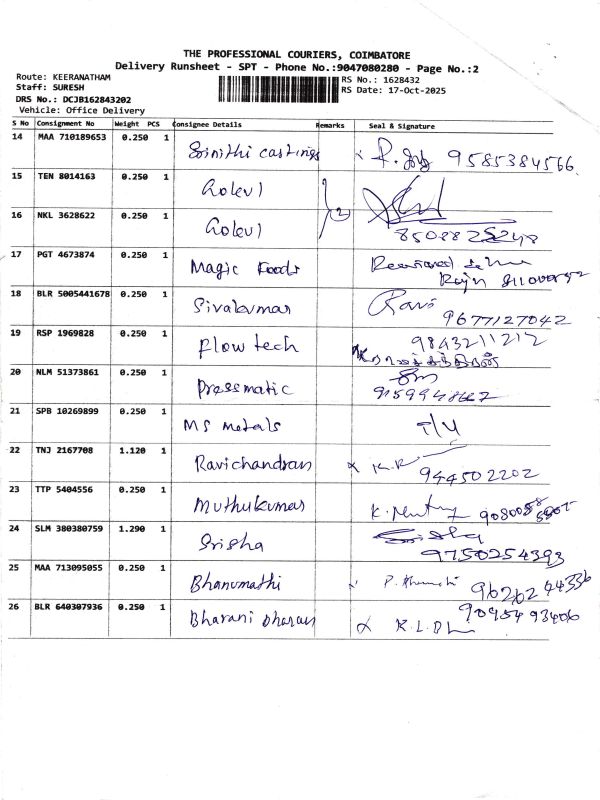 THE PROFESSIONAL COURIERS, COIMBATORE
Delivery Runsheet - SPT - Phone No.:9047080280 - Page No.:2
Route: KEERANATHAM
Staff: SURESH
DRS No.: DCJB162843202
Vehicle: Office Delivery
RS No.: 1628432
RS Date: 17-Oct-2025
S No Consignment No Weight PCS Consignee Details Remarks Seal & Signature
14 MAA 710189653 0.250 1 Srinithi castings 9585384566
15 TEN 8014163 0.250 1 Golevl
2
16 NKL 3628622 0.250 1 Golevl
17 PGT 4673874 0.250 1 Magic Foods
18 BLR 5005441678 0.250 1 Sivakumar Ravi
9677127042
19 RSP 1969828 0.250 1 Flow tech 9843211212
20 NLM 51373861 0.250 1 Pressmatic
21 SPB 10269899 0.250 1 MS metals
22 TNJ 2167708 1.120 1 Ravichandran K.R
944502202
23 TTP 5404556 0.250 1 Muthukumar
24 SLM 380380759 1.290 1 Srisha
9750254393
25 MAA 713095055 0.250 1 Bhanumathi 9626244336
26 BLR 640307936 0.250 1 Bharani Dharan